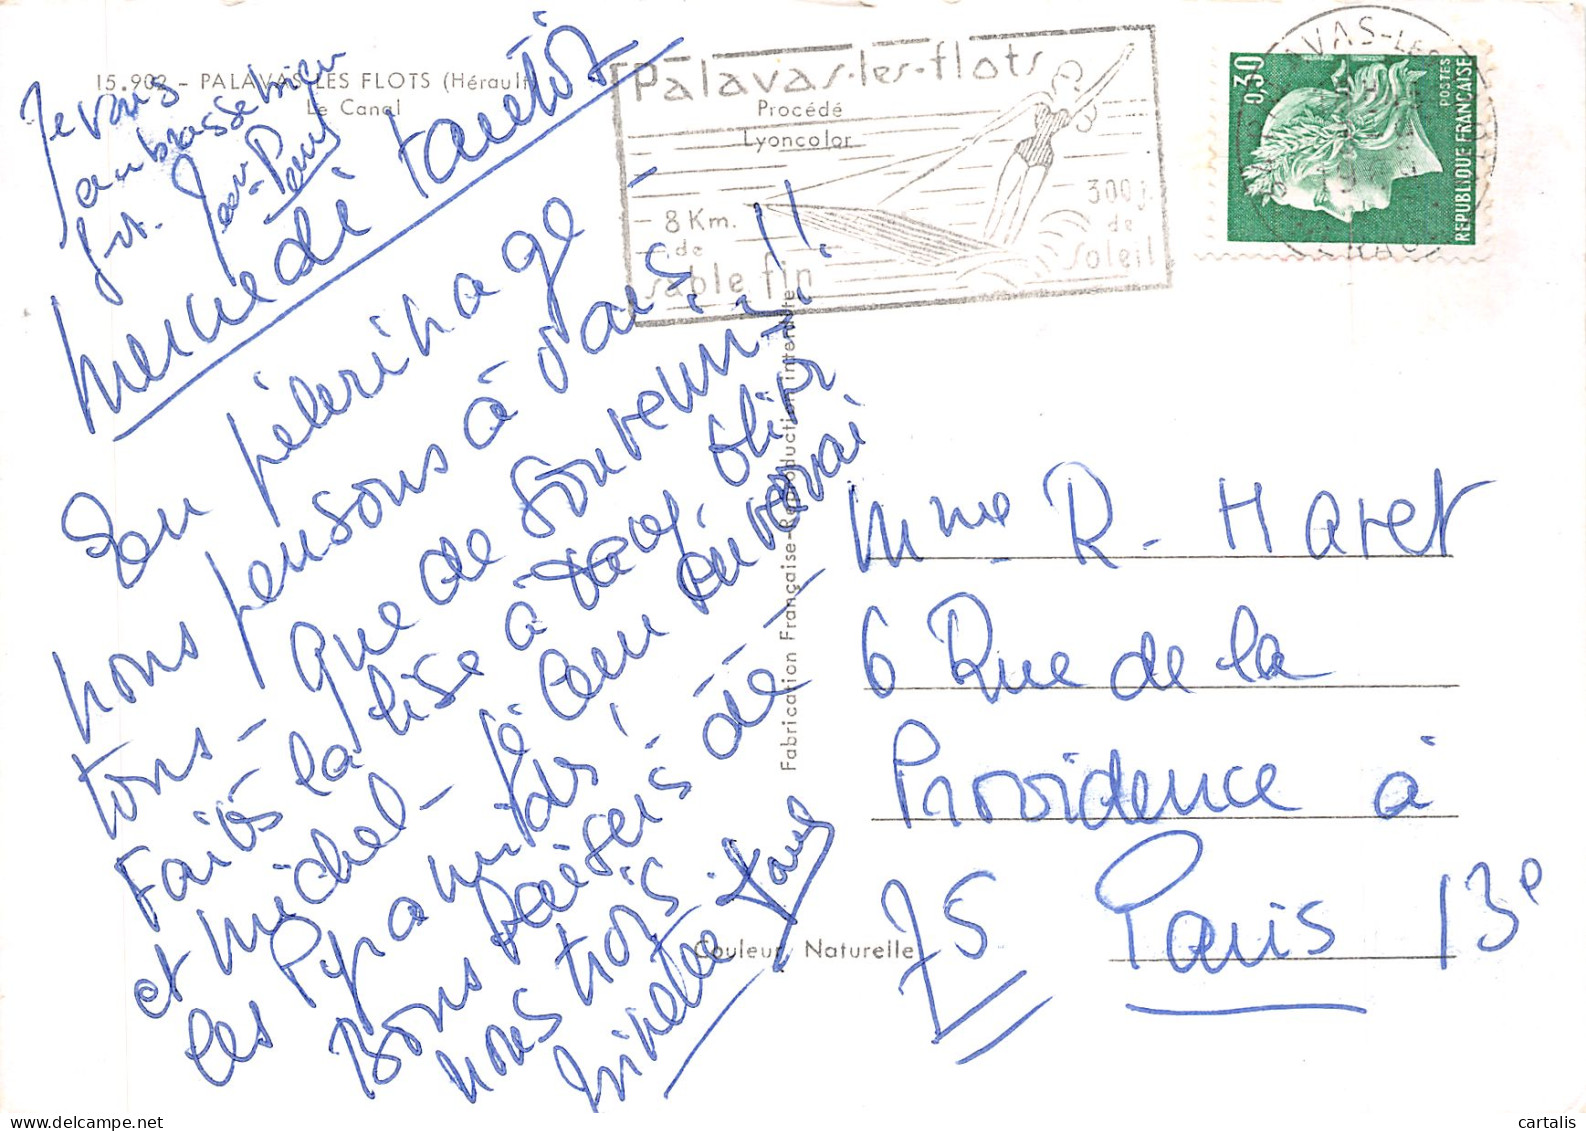 15.902 - PALAVAS-LES FLOTS (Hérault)
Le Canal
Je vous
embrasse bien
fort. Jean-Denis
mercredi tantôt
Bon pèlerinage
nous pensons à vous
tous - que de souvenirs !!
Faites la bise à Olivier
et Michel -
les Pyramides !
Bons baisers de
nous trois
Ginette
Palavas-les-flots
Procédé
Lyoncolor
8 Km.
de
sable fin
300 j.
de
Soleil
PALAVAS-LES
HERAULT
0,30
POSTES
REPUBLIQUE FRANÇAISE
Fabrication Française-Reproduction interdite
Couleur Naturelle
Mme R. Haret
6 Rue de la
Providence à
75 Paris 13e
© cartalis
www.delcampe.net